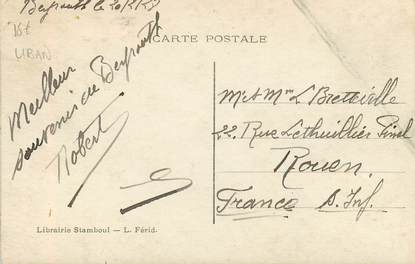 Beyrouth le
LIBAN
CARTE POSTALE
Meilleur
souvenir de Beyrouth
Robert
M. et Mme L. Bretteville
22. Rue Lethuillier Pinel
Rouen.
France S. Inf.
Librairie Stamboul — L. Férid.